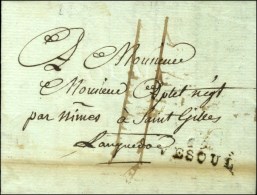 A Monsieur
Monsieur négt
par Nimes a Saint Gilles
Languedoc
VESOUL